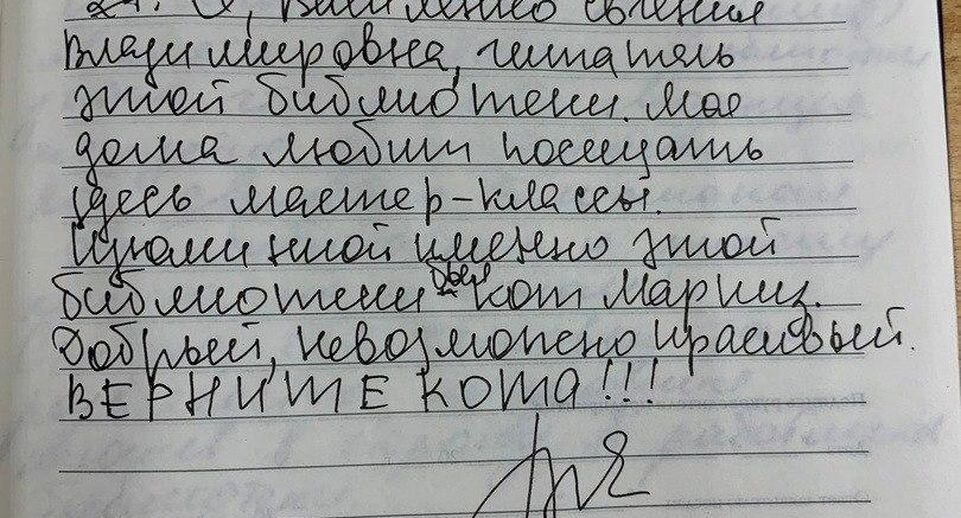 Я, Василенко Евгения
Владимировна, читатель
этой библиотеки. Моя
дома любит посещать
здесь мастер-классы.
Изюминкой именно этой
библиотеки был кот Маркиз.
Добрый, невозможно красивый.
ВЕРНИТЕ КОТА!!!